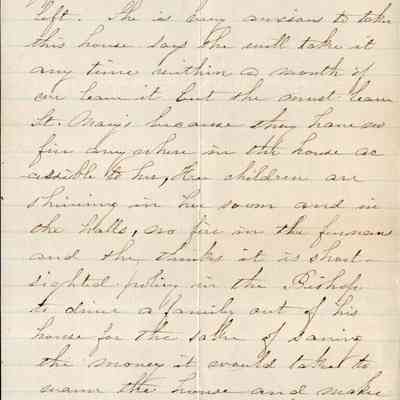 left. She is very anxious to take
this house says she will take it
any time within a month if
we leave it but she must leave
St. Mary's because they have no
fire anywhere in the house ac
cessible to her, Her children are
shivering in her room and in
the halls, no fire in the furnace
and she thinks it is short-
sighted policy in the Bishop
to drive a family out of his
house for the sake of saving
the money it would take to
warm the house and make